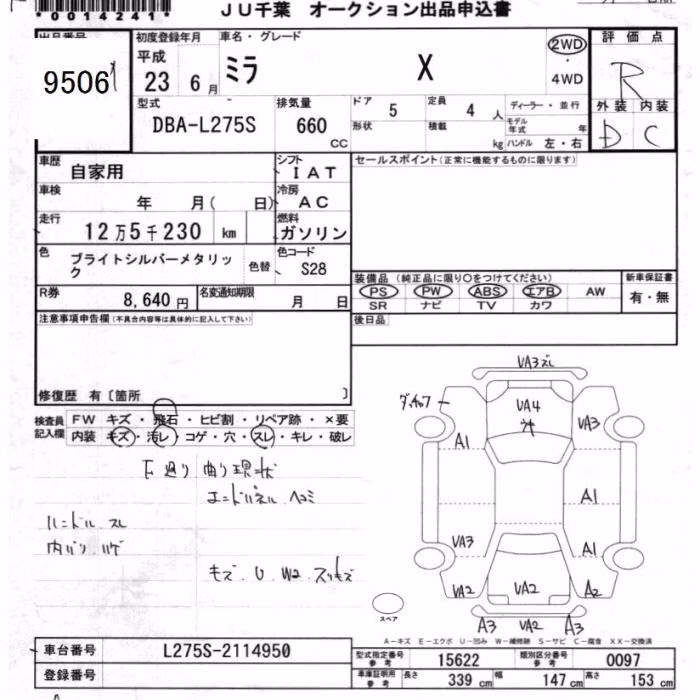 *0014241*
JU千葉 オークション出品申込書
出品番号
9506
初度登録年月
平成
23 6月
車名・グレード
ミラ X
2WD
・
4WD
評価点
R
外装 内装
D C
型式
DBA-L275S
排気量
660 CC
ドア 5
定員 4 人
形状
積載 kg
ディーラー・並行
モデル年式 年
ハンドル 左・右
車歴
自家用
シフト
IAT
車検
年 月( 日)
冷房
AC
走行
12万5千230 km
燃料
ガソリン
色
ブライトシルバーメタリック
色替
色コード
S28
R券
8,640円
名変通知期限
月 日
セールスポイント(正常に機能するものに限ります)
装備品 (純正品に限り○をつけてください)
PS PW ABS エアB AW
SR ナビ TV カワ
新車保証書
有・無
後日品
注意事項申告欄(不具合内容等は具体的に記入して下さい)
修復歴 有〔箇所 〕
検査員記入欄
FW キズ・飛石・ヒビ割・リペア跡・×要
内装 キズ・汚レ・コゲ・穴・スレ・キレ・破レ
曲り現状
エンドパネル ヘコミ
ハンドル スレ
内バリ ハゲ
キズ U W2 スリキズ
VA3ズレ
VA4
ウキ
VA3
A1
A1
VA3
A1
VA2
VA2
A2
A3 VA2 A3
スペア
A-キズ E-エクボ U-凹み W-補修跡 S-サビ C-腐食 XX-交換済
車台番号
L275S-2114950
登録番号
型式指定番号 参考
15622
類別区分番号 参考
0097
車庫証明用 参考
長さ 339 cm 幅 147 cm 高さ 153 cm